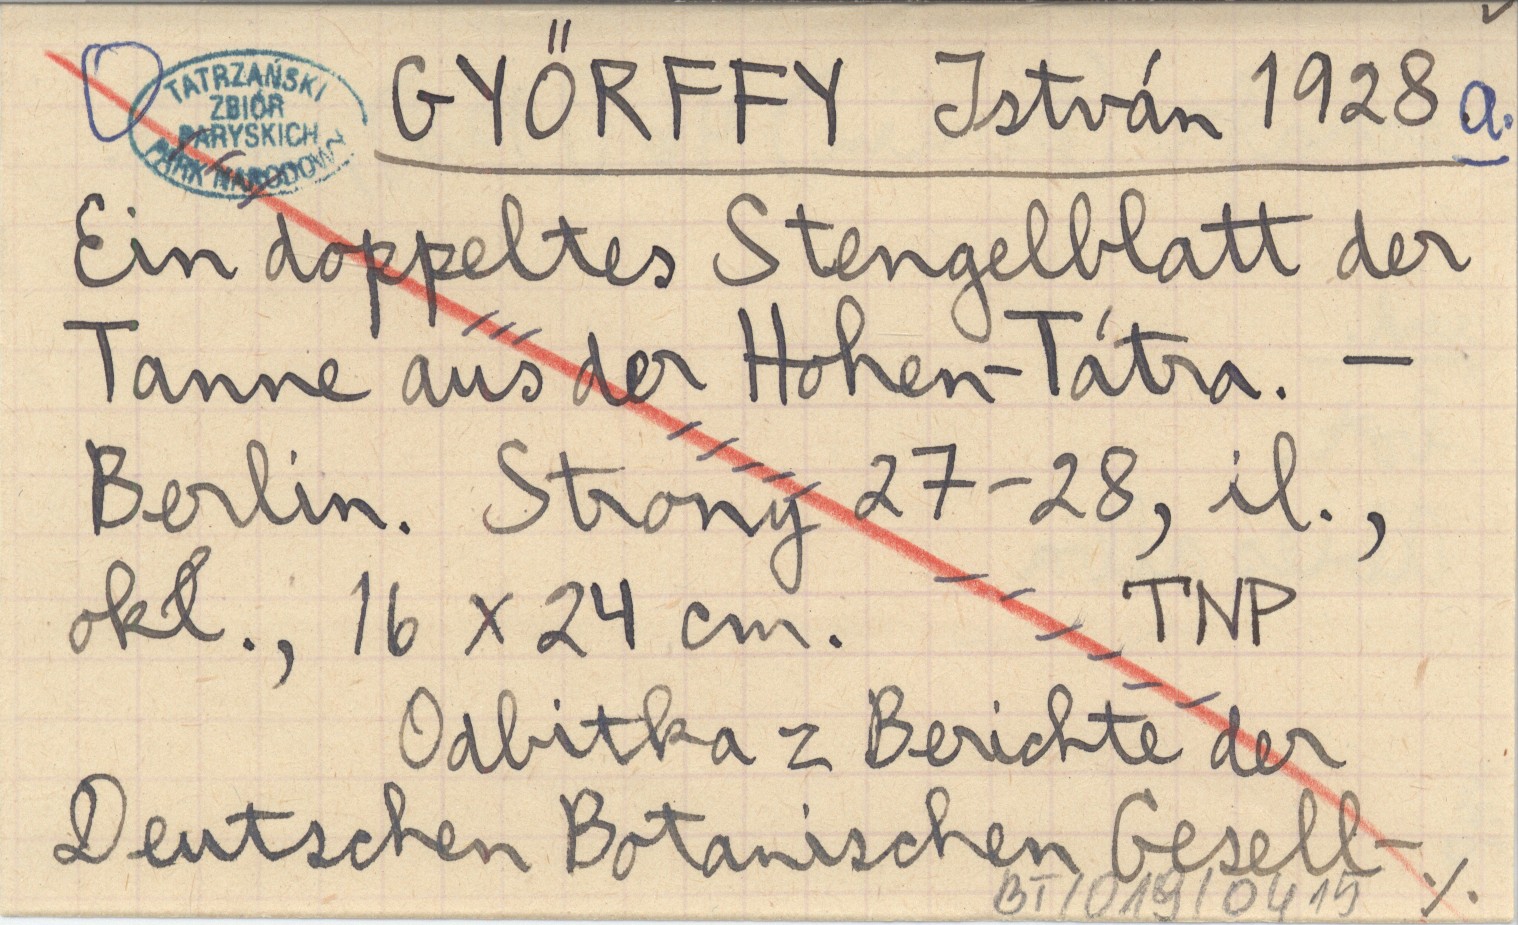 TATRZAŃSKI
ZBIÓR
PARYSKICH
PARK NARODOWY
GYŐRFFY István 1928 a.
Ein doppeltes Stengelblatt der
Tanne aus der Hohen-Tátra. —
Berlin. Strony 27-28, il.,
okł., 16 x 24 cm. TNP
Odbitka z Berichte der
Deutschen Botanischen Gesell-
BT/019/0415 ./.